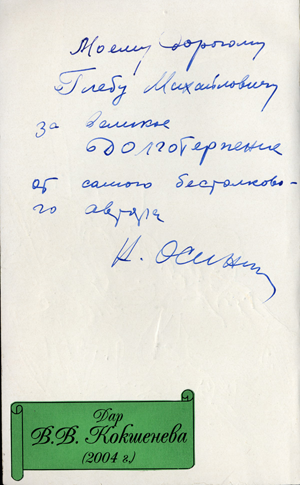 Моему дорогому
Глебу Михайловичу
за великое
ДОЛГОТерпение
от самого бестолково-
го автора
Н. Осинин
Дар
В.В. Кокшенева
(2004 г.)